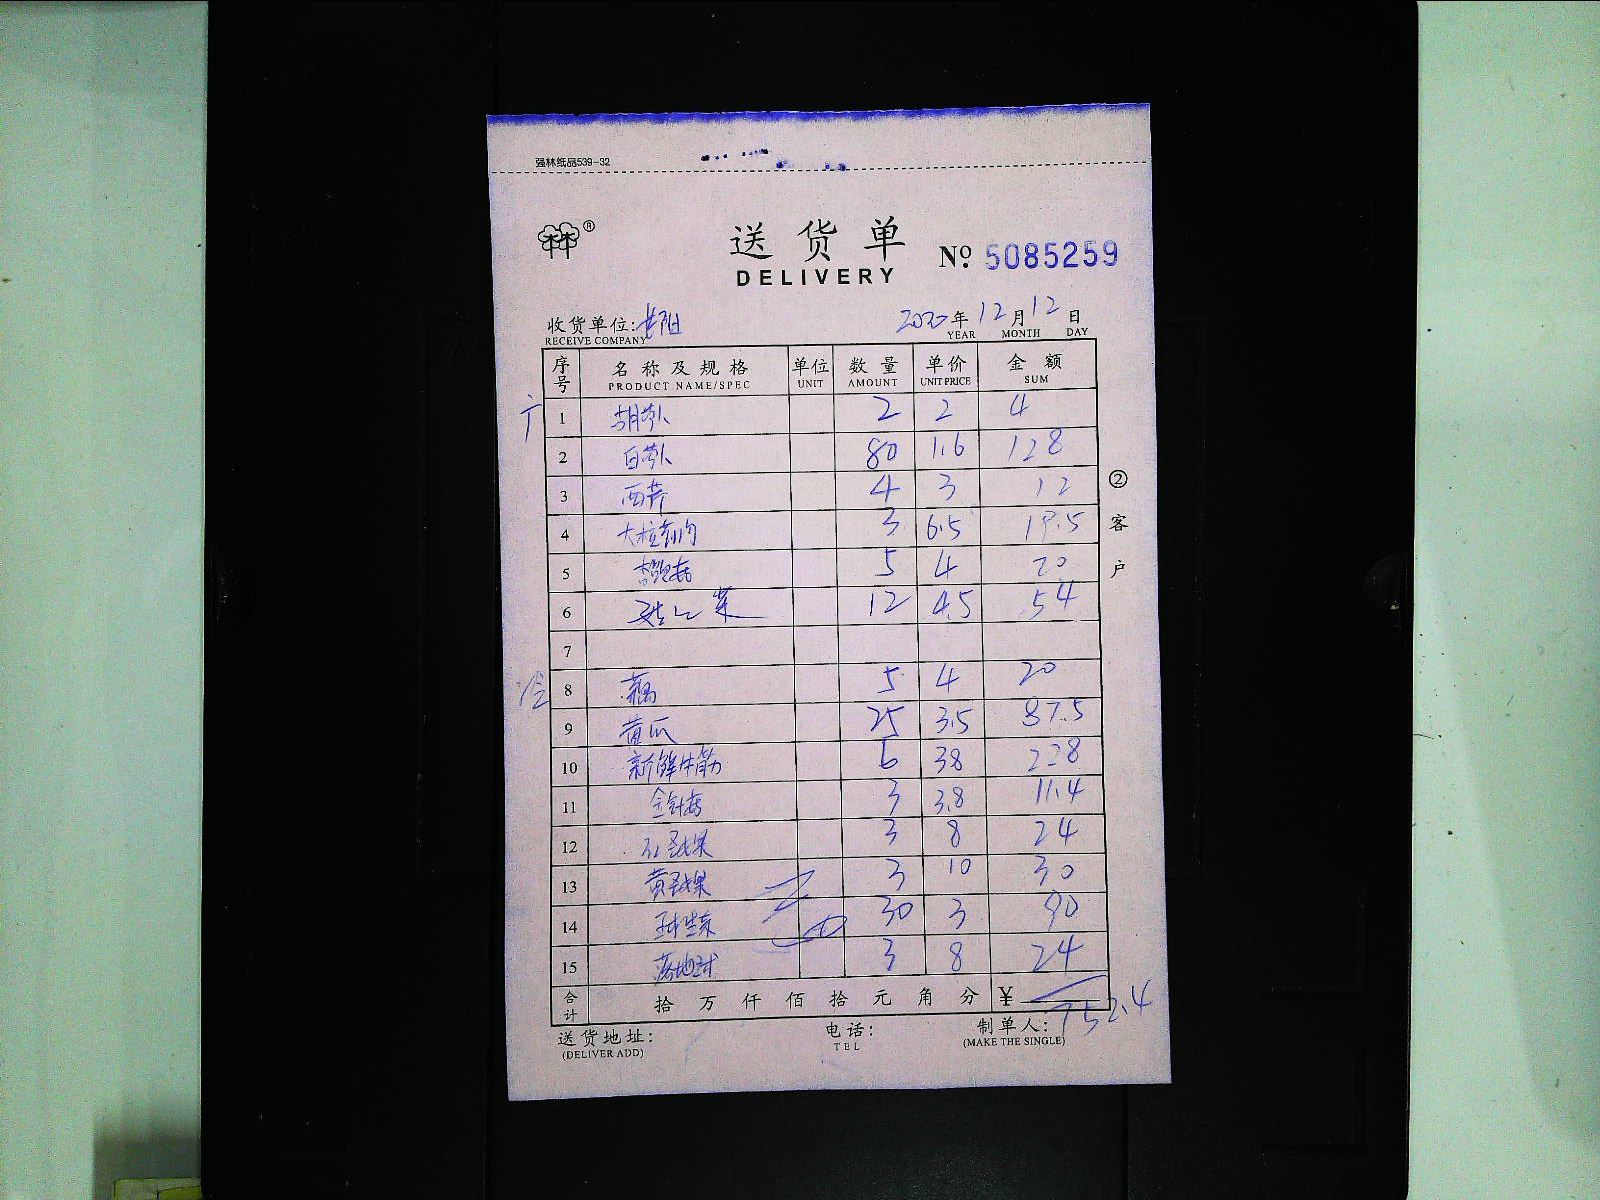 强林纸品539-32
林林®
送货单
DELIVERY
Nº. 5085259
收货单位:
RECEIVE COMPANY
2020年12月12日
YEAR MONTH DAY
序号 名称及规格 单位 数量 单价 金额
PRODUCT NAME/SPEC UNIT AMOUNT UNIT PRICE SUM
1 胡萝卜 2 2 4
2 白萝卜 80 1.6 128
3 西芹 4 3 12
4 大粒 3 6.5 19.5
5 5 4 20
6 菜 12 4.5 54
7
冷 8 藕 5 4 20
9 黄瓜 25 3.5 87.5
10 新鲜牛筋 6 38 228
11 金针菇 3 3.8 11.4
12 红圣女果 3 8 24
13 黄圣女果 3 10 30
14 球生菜 30 3 90
15 落地球 3 8 24
合计 拾万仟佰拾元角分 ¥ 752.4
送货地址: 电话: 制单人:
(DELIVER ADD) TEL (MAKE THE SINGLE)
②客户